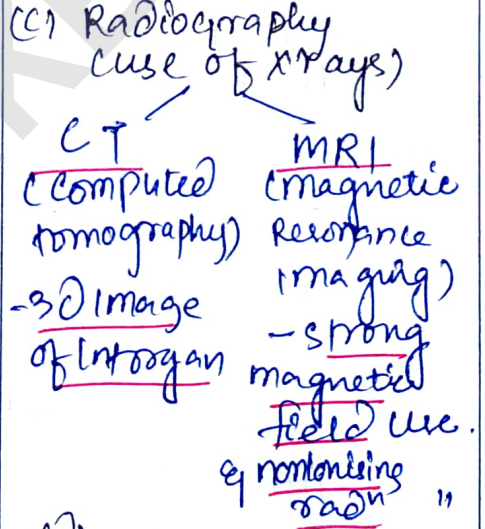 (C) Radiography
(use of x rays)
CT
(Computed
tomography)
-3D image
of Int organ
MRI
(magnetic
Resonance
imaging)
- strong
magnetic
field use.
& nonionising
radn "